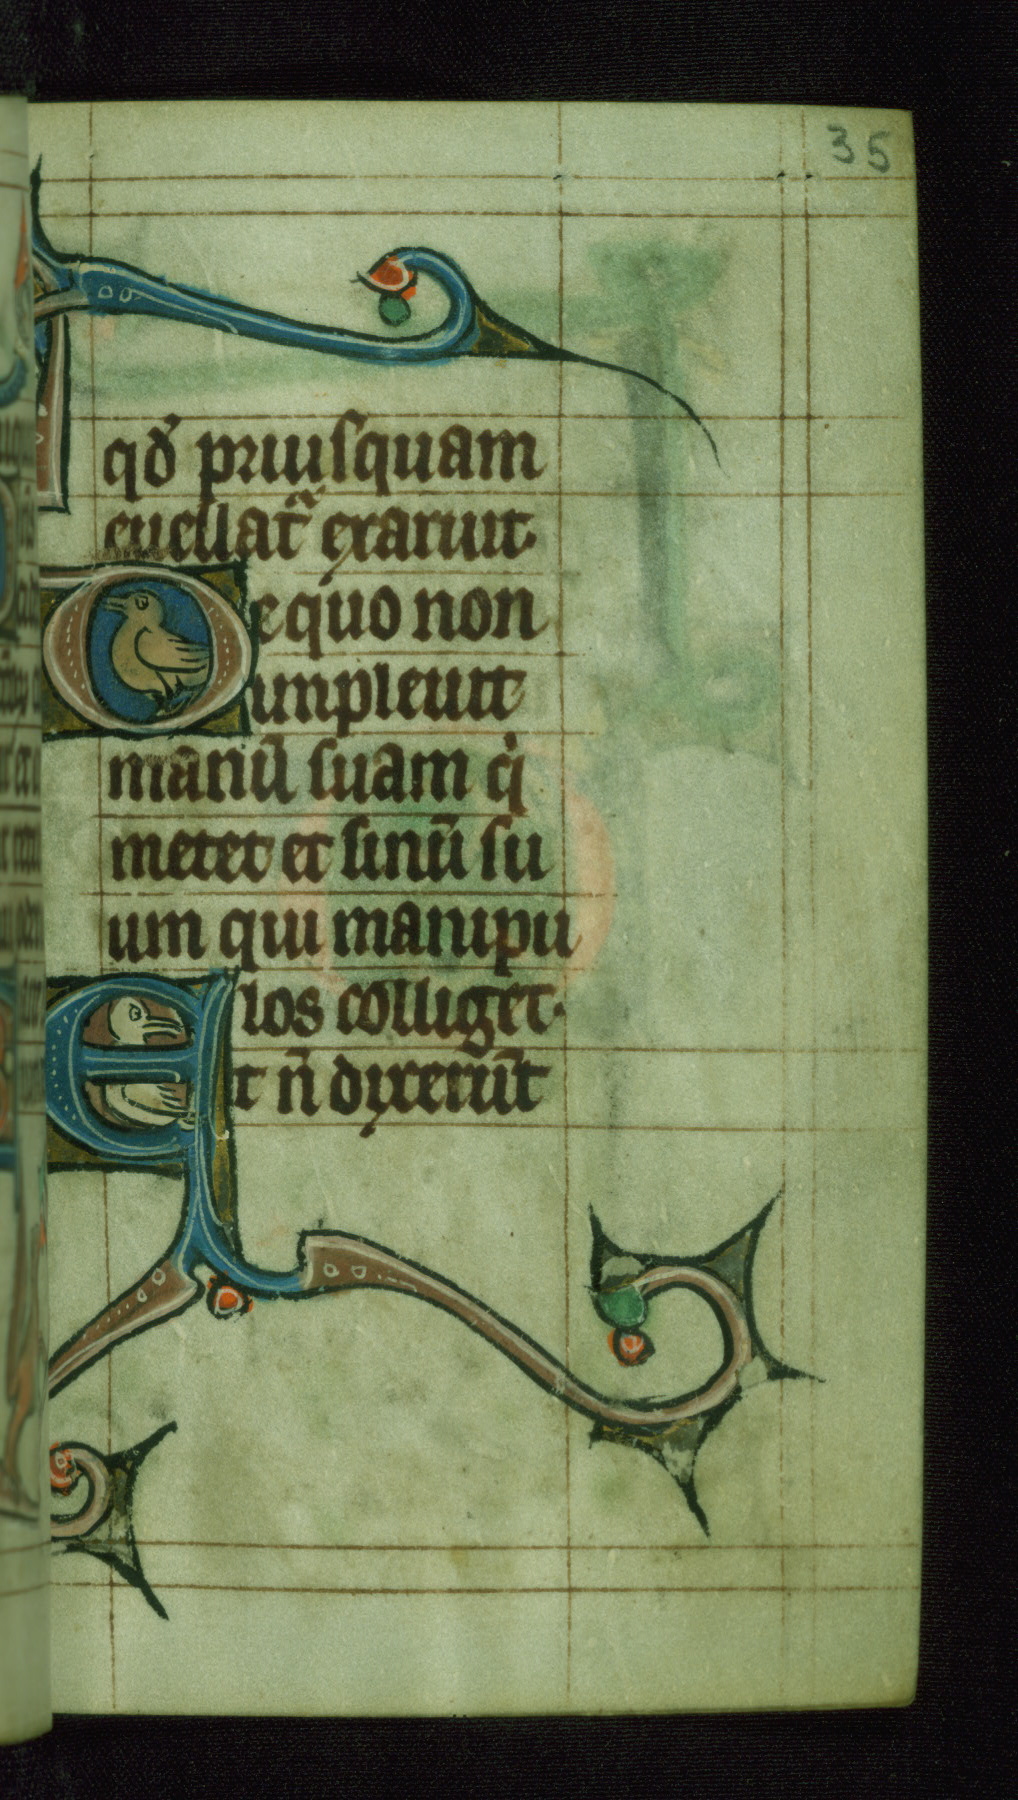 35
qd̕ priusquam
euellat᷑ exaruit·
De quo non
impleuit
manū suam q̇
metet et sinū su
um qui manipu
los colliget·
Et n̄ dixerūt